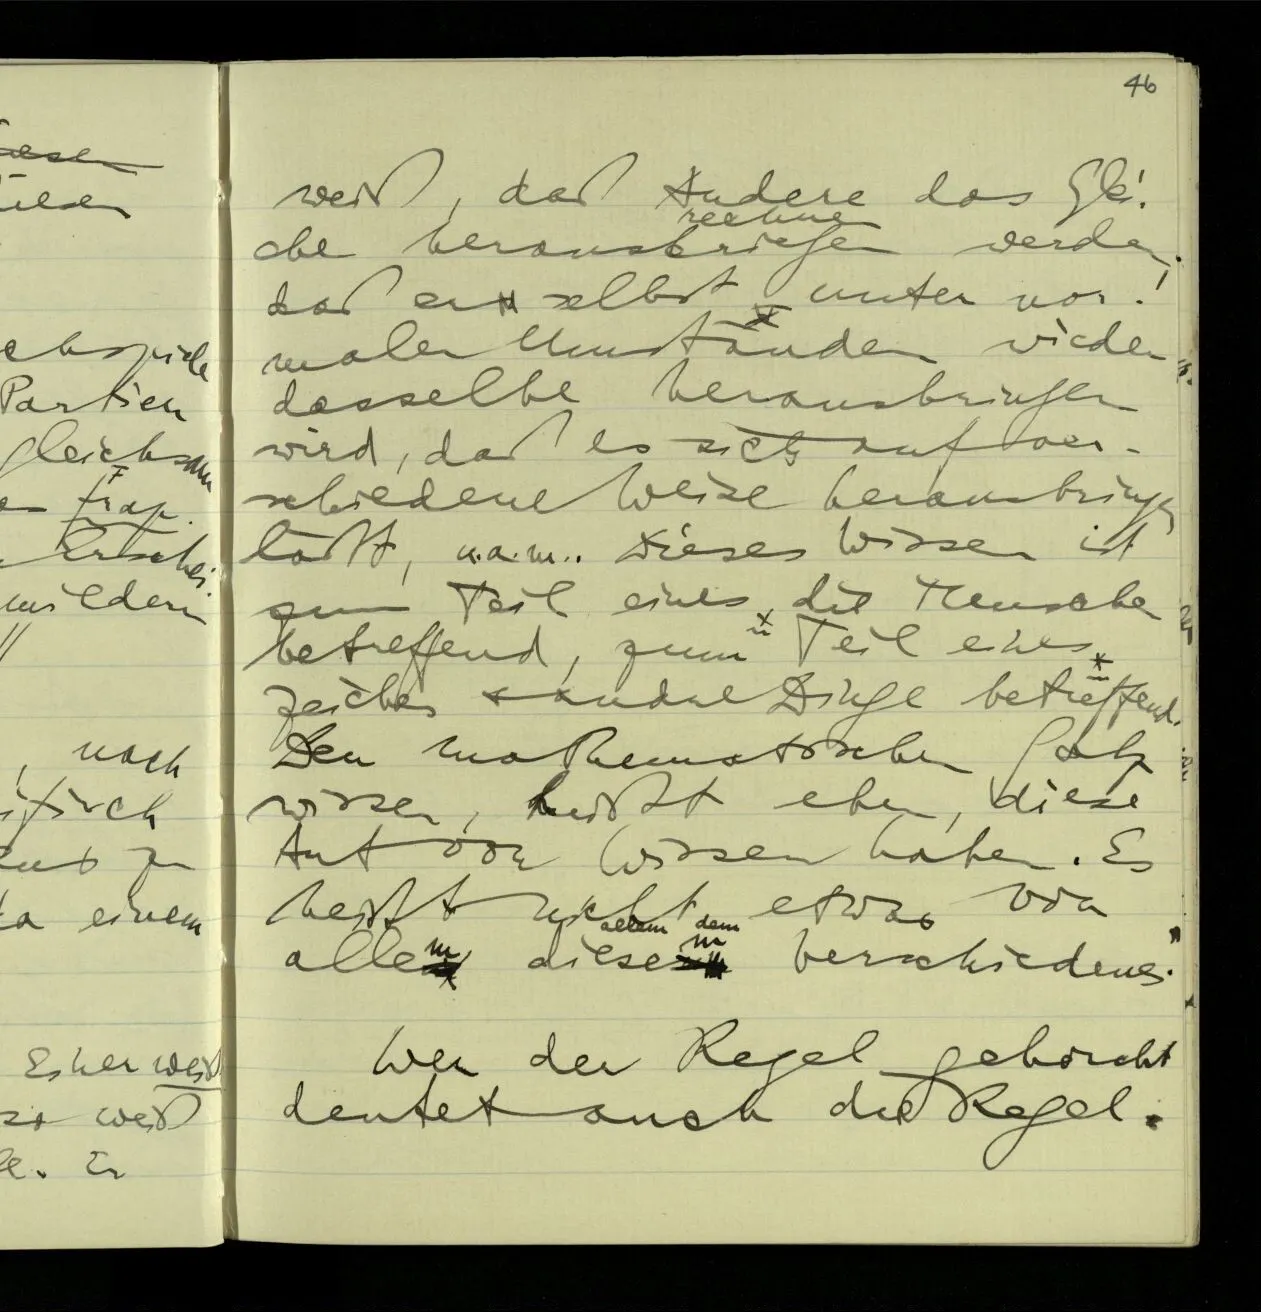 46
weiß, daß Andere das Glei-
rechnen
che herausbringen werden,
daß er selbst unter nor-
malen Umständen wieder
dasselbe herausbringen
wird, daß es sich auf ver-
schiedene Weise herausbringen
läßt, u.a.m.. Dieses Wissen ist
zum Teil eines die Menschen
betreffend, zum Teil eines
andre Dinge betreffend.
Den mathematischen Satz
wissen, heißt eben, diese
Art von Wissen haben. Es
heißt nicht etwas von
allem dem
allem diesem Verschiedenes.
Wer der Regel gehorcht
deutet auch die Regel.
uesen
Partien
gleichsam
frap-
Erschei-
mildern
, nach
einem
Einer weiß
so weiß
Er